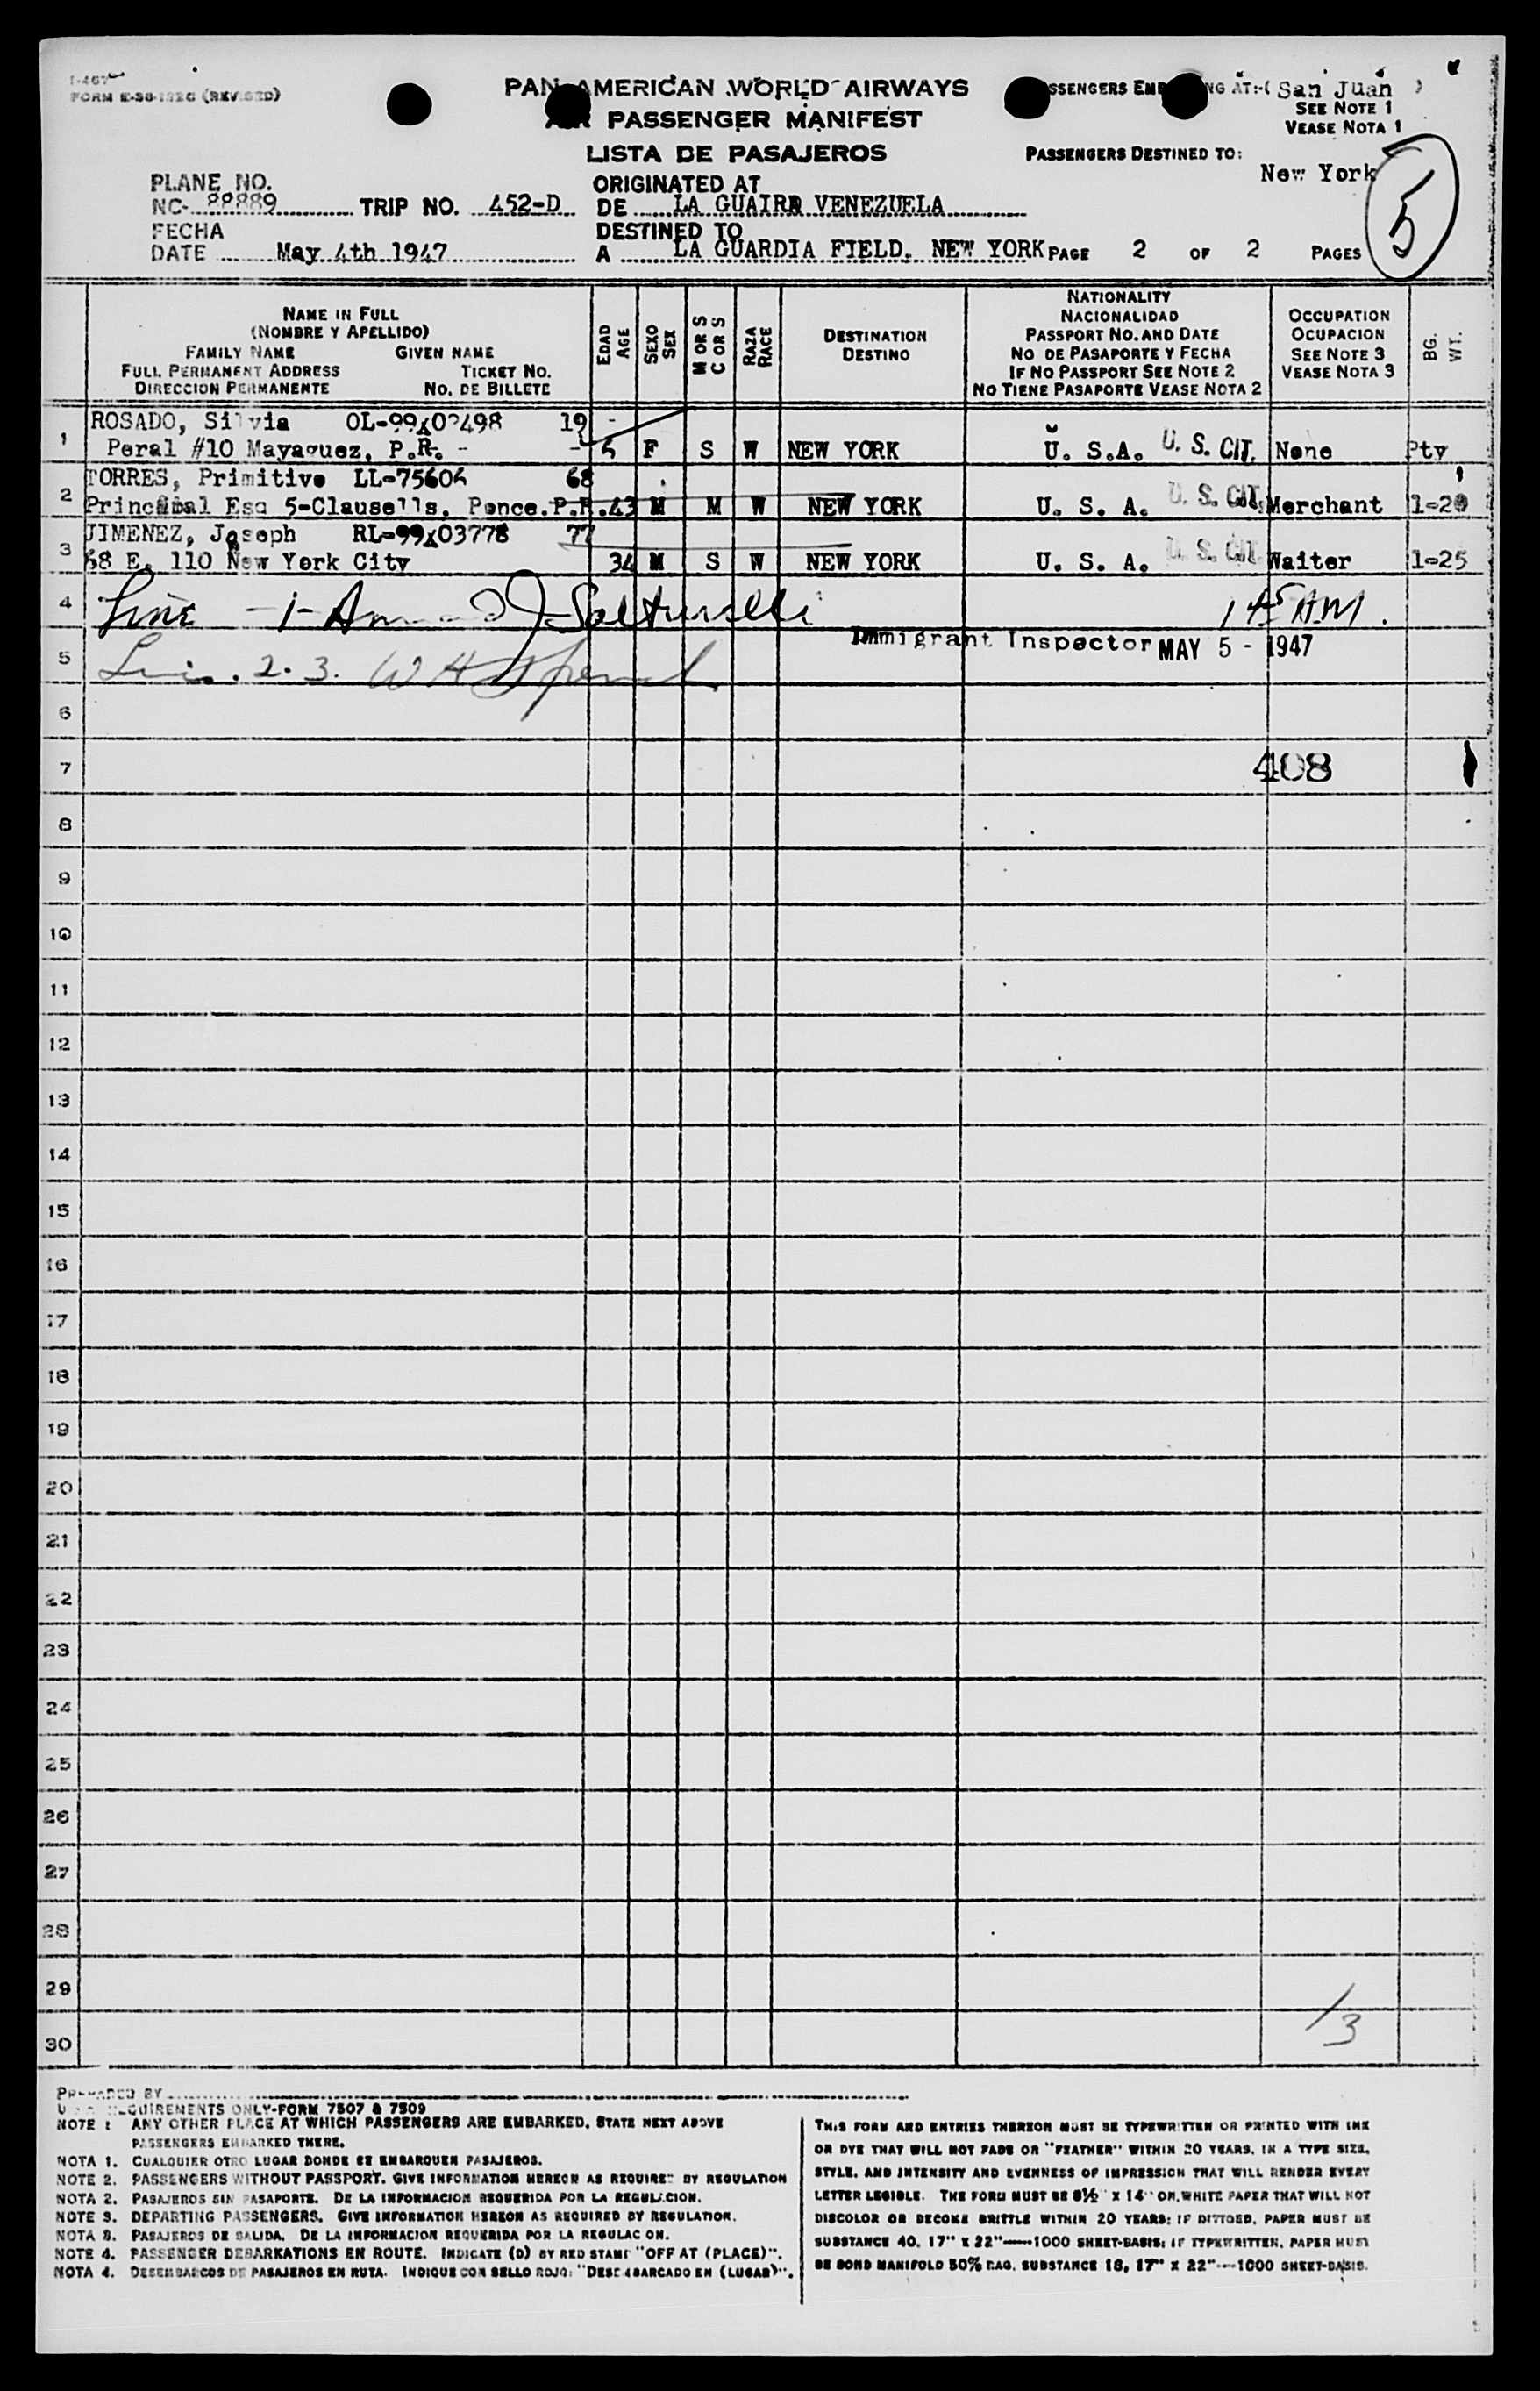 I-467
FORM E-38-192C (REVISED)
PAN AMERICAN WORLD AIRWAYS
PASSENGER MANIFEST
LISTA DE PASAJEROS
SSENGERS EMB NG AT:-( San Juan )
SEE NOTE 1
VEASE NOTA 1
PASSENGERS DESTINED TO:
New York
5
PLANE NO.
NC- 88889 TRIP NO. 452-D
ORIGINATED AT
DE LA GUAIRA VENEZUELA
FECHA
DATE May 4th 1947
DESTINED TO
A LA GUARDIA FIELD. NEW YORK PAGE 2 OF 2 PAGES
NAME IN FULL
(NOMBRE Y APELLIDO)
FAMILY NAME GIVEN NAME
FULL PERMANENT ADDRESS TICKET NO.
DIRECCION PERMANENTE NO. DE BILLETE
EDAD AGE
SEXO SEX
M OR S C OR S
RAZA RACE
DESTINATION
DESTINO
NATIONALITY
NACIONALIDAD
PASSPORT NO. AND DATE
NO DE PASAPORTE Y FECHA
IF NO PASSPORT SEE NOTE 2
NO TIENE PASAPORTE VEASE NOTA 2
OCCUPATION
OCUPACION
SEE NOTE 3
VEASE NOTA 3
BG. WT.
1 ROSADO, Silvia OL-99x02498 19 -
Peral #10 Mayaguez, P.R. - - 5 F S W NEW YORK U. S.A. U. S. CIT. None Pty
2 TORRES, Primitivo LL-75606 68
Principal Esq 5-Clausells, Ponce.P.R. 43 M M W NEW YORK U. S. A. U. S. CIT. Merchant 1-20
3 JIMENEZ, Joseph RL-99x03778 77
68 E. 110 New York City 34 M S W NEW YORK U. S. A. U. S. CIT. Waiter 1-25
4 Line -1- 1 45 AM.
Immigrant Inspector MAY 5 - 1947
5 Lin. 2. 3.
6
7 408
8
9
10
11
12
13
14
15
16
17
18
19
20
21
22
23
24
25
26
27
28
29
30
1/3
PREPARED BY
REQUIREMENTS ONLY-FORM 7507 & 7509
NOTE 1 ANY OTHER PLACE AT WHICH PASSENGERS ARE EMBARKED. STATE NEXT ABOVE
PASSENGERS EMBARKED THERE.
NOTA 1. CUALQUIER OTRO LUGAR DONDE SE EMBARQUEN PASAJEROS.
NOTE 2. PASSENGERS WITHOUT PASSPORT. GIVE INFORMATION HEREON AS REQUIRED BY REGULATION
NOTA 2. PASAJEROS SIN PASAPORTE. DE LA INFORMACION REQUERIDA POR LA REGULACION.
NOTE 3. DEPARTING PASSENGERS. GIVE INFORMATION HEREON AS REQUIRED BY REGULATION.
NOTA 3. PASAJEROS DE SALIDA. DE LA INFORMACION REQUERIDA POR LA REGULAC ON.
NOTE 4. PASSENGER DEBARKATIONS EN ROUTE. INDICATE (D) BY RED STAMP "OFF AT (PLACE)".
NOTA 4. DESEMBARCOS DE PASAJEROS EN RUTA. INDIQUE CON SELLO ROJO: "DESEMBARCADO EN (LUGAR)".
THIS FORM AND ENTRIES THEREON MUST BE TYPEWRITTEN OR PRINTED WITH INK
OR DYE THAT WILL NOT FADE OR "FEATHER" WITHIN 20 YEARS, IN A TYPE SIZE,
STYLE, AND INTENSITY AND EVENNESS OF IMPRESSION THAT WILL RENDER EVERY
LETTER LEGIBLE. THE FORM MUST BE 8½" X 14" ON WHITE PAPER THAT WILL NOT
DISCOLOR OR BECOME BRITTLE WITHIN 20 YEARS; IF DITTOED, PAPER MUST BE
SUBSTANCE 40, 17" X 22"-----1000 SHEET-BASIS; IF TYPEWRITTEN, PAPER MUST
BE BOND MANIFOLD 50% RAG, SUBSTANCE 16, 17" X 22"---1000 SHEET-BASIS.